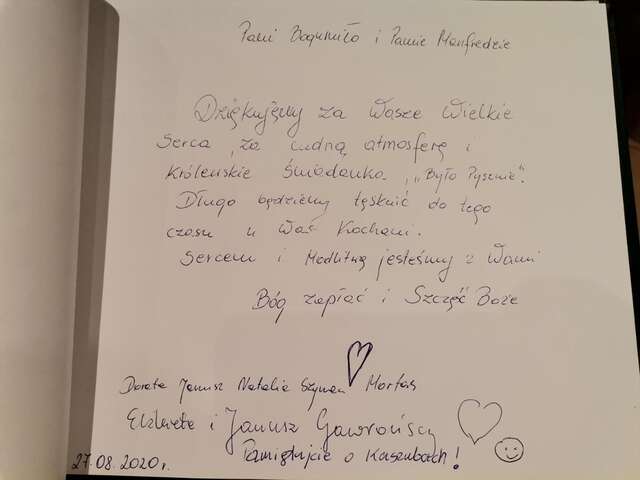 Pani Bogumiło i Panie Manfredzie
Dziękujęmy za Wasze Wielkie
Serca, za cudną atmosferę i
Królewskie Śniadanka, „Było Pysznie".
Długo będziemy tęsknić do tego
czasu u Was Kochani.
Sercem i Modlitwą jesteśmy z Wami
Bóg zapłać i Szczęść Boże
Dorota Janusz Natalia Szymon
Elżbieta i Janusz Gawrońscy
Pamiętajcie o
27.08.2020r.